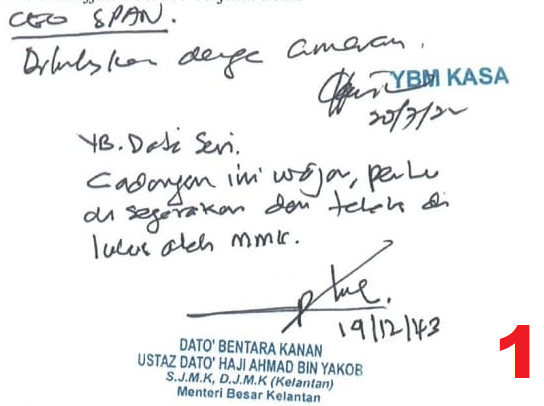 CEO SPAN.
Diluluskan dengan amaran.
YBM KASA
20/7/22
YB. Dato Seri.
Cadangan ini wajar, perlu
di segerakan dan telah di
lulus oleh MMK.
19/12/43
DATO' BENTARA KANAN
USTAZ DATO' HAJI AHMAD BIN YAKOB
S.J.M.K, D.J.M.K (Kelantan)
Menteri Besar Kelantan
1